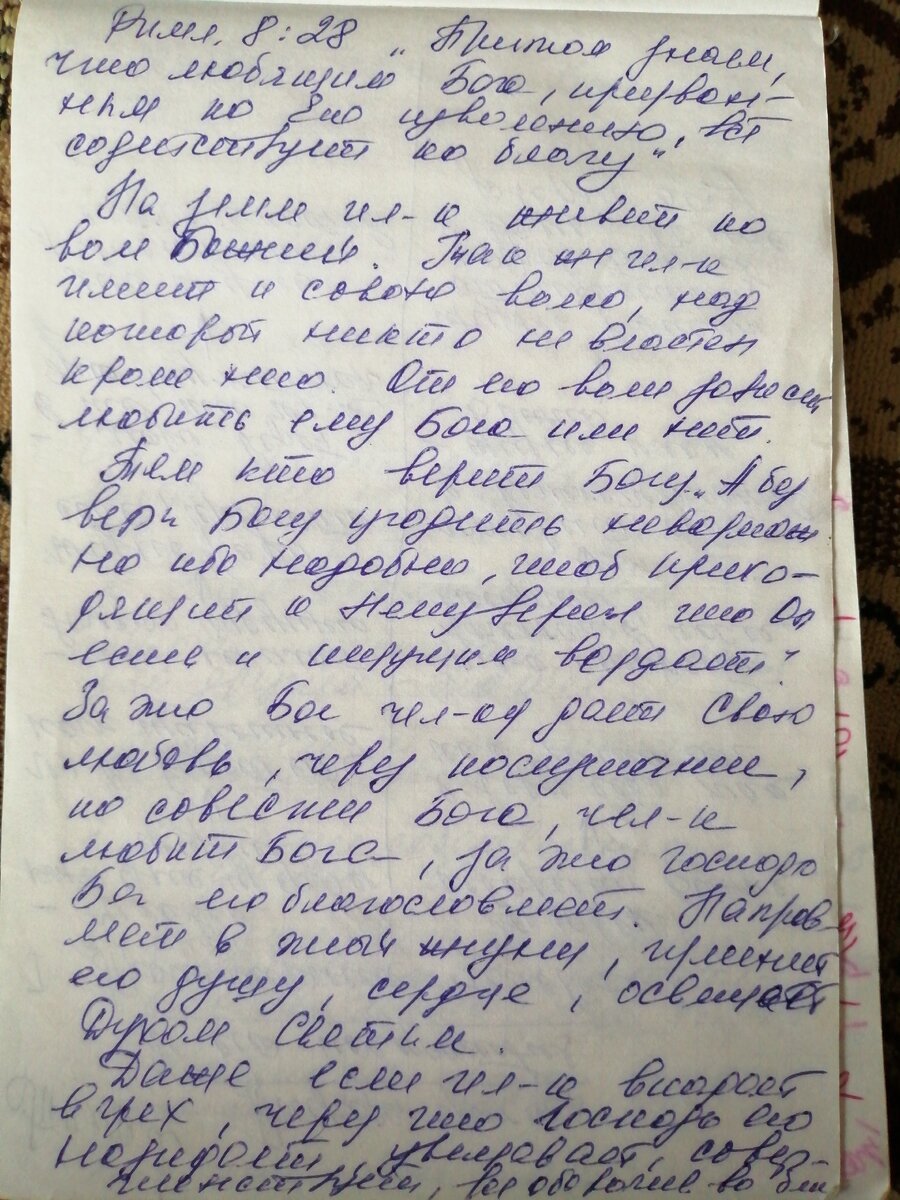 Римл. 8:28 „Притом знаем,
что любящим Бога, призван-
ным по Его изволению, всё
содействует ко благу“.
На земле чел-к живет по
воле Божией. Так же чел-к
имеет и свою волю, над
которой никто не властен
кроме него. От его воли зависит
любить ему Бога или нет.
Тем кто верит Богу. „А без
веры Богу угодить невозмож
но ибо надобно, чтоб прихо-
дящий к Нему верил что Он
есть и ищущим воздает“
За это Бог чел-ку дает Свою
любовь, через послушание,
Бога, чел-к
любит Бога, за это Господь
Бог его благословляет. Направ-
ляет в этой жизни, изменяет
его душу, сердце, освещает
Духом Святым.
Даже если чел-к впадает
в грех, через что Господь его
назидает, совер-
шенствует,